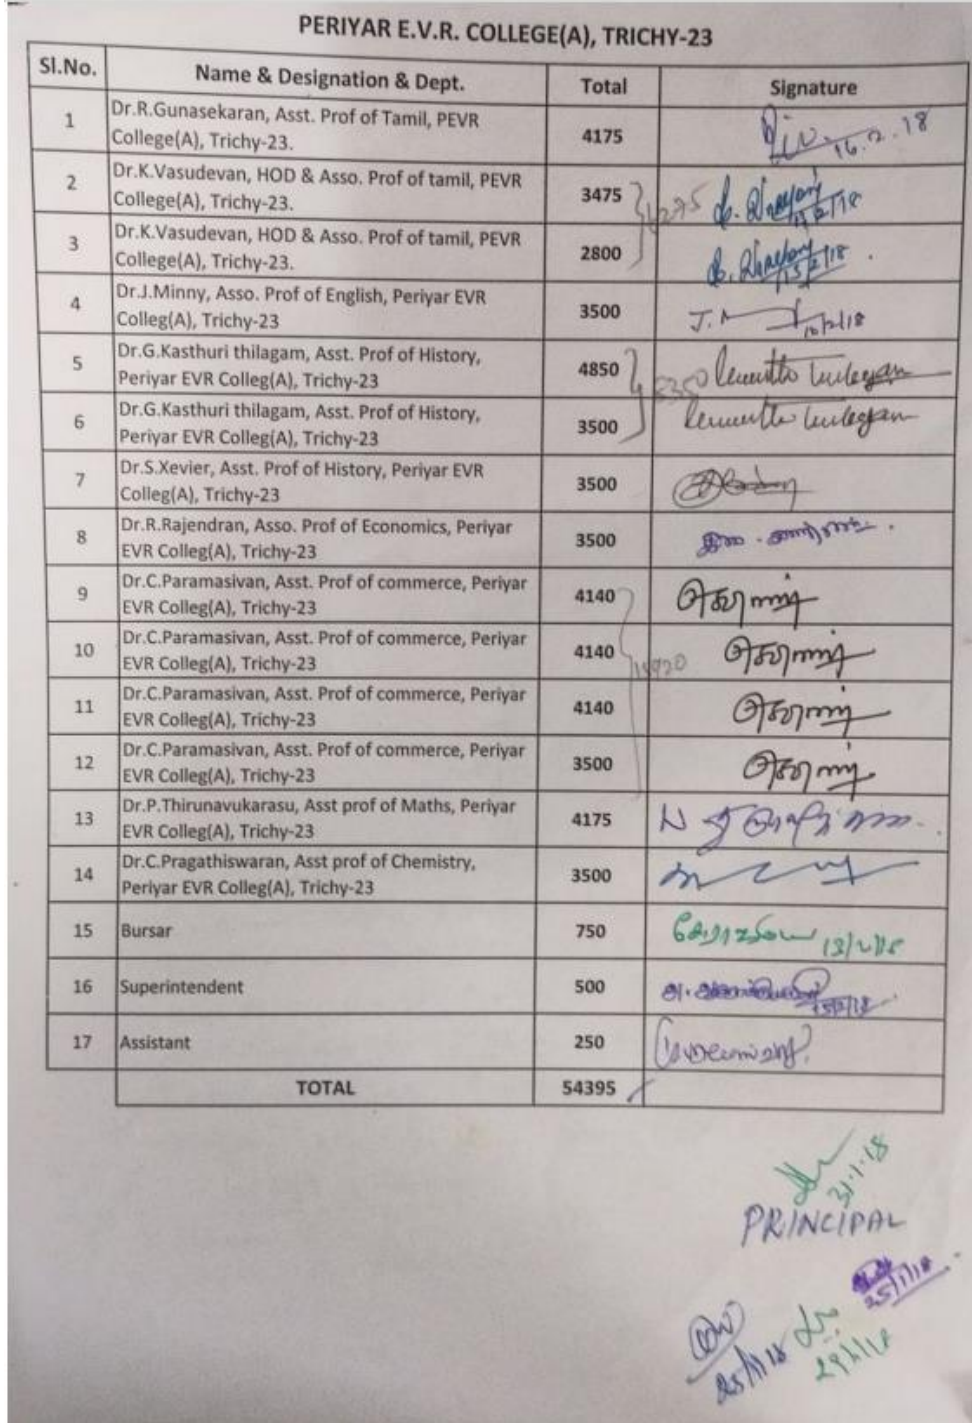 PERIYAR E.V.R. COLLEGE(A), TRICHY-23
Sl.No. Name & Designation & Dept. Total Signature
1 Dr.R.Gunasekaran, Asst. Prof of Tamil, PEVR 4175
College(A), Trichy-23. 16.2.18
2 Dr.K.Vasudevan, HOD & Asso. Prof of tamil, PEVR 3475
College(A), Trichy-23.
3 Dr.K.Vasudevan, HOD & Asso. Prof of tamil, PEVR 2800
College(A), Trichy-23. 15/2/18
4 Dr.J.Minny, Asso. Prof of English, Periyar EVR 3500
Colleg(A), Trichy-23
5 Dr.G.Kasthuri thilagam, Asst. Prof of History, 4850
Periyar EVR Colleg(A), Trichy-23
6 Dr.G.Kasthuri thilagam, Asst. Prof of History, 3500
Periyar EVR Colleg(A), Trichy-23
7 Dr.S.Xevier, Asst. Prof of History, Periyar EVR 3500
Colleg(A), Trichy-23
8 Dr.R.Rajendran, Asso. Prof of Economics, Periyar 3500
EVR Colleg(A), Trichy-23
9 Dr.C.Paramasivan, Asst. Prof of commerce, Periyar 4140
EVR Colleg(A), Trichy-23
10 Dr.C.Paramasivan, Asst. Prof of commerce, Periyar 4140
EVR Colleg(A), Trichy-23
11 Dr.C.Paramasivan, Asst. Prof of commerce, Periyar 4140
EVR Colleg(A), Trichy-23
12 Dr.C.Paramasivan, Asst. Prof of commerce, Periyar 3500
EVR Colleg(A), Trichy-23
13 Dr.P.Thirunavukarasu, Asst prof of Maths, Periyar 4175
EVR Colleg(A), Trichy-23
14 Dr.C.Pragathiswaran, Asst prof of Chemistry, 3500
Periyar EVR Colleg(A), Trichy-23
15 Bursar 750
16 Superintendent 500
17 Assistant 250
TOTAL 54395
31.1.18
PRINCIPAL
25/1/18
25/1/18